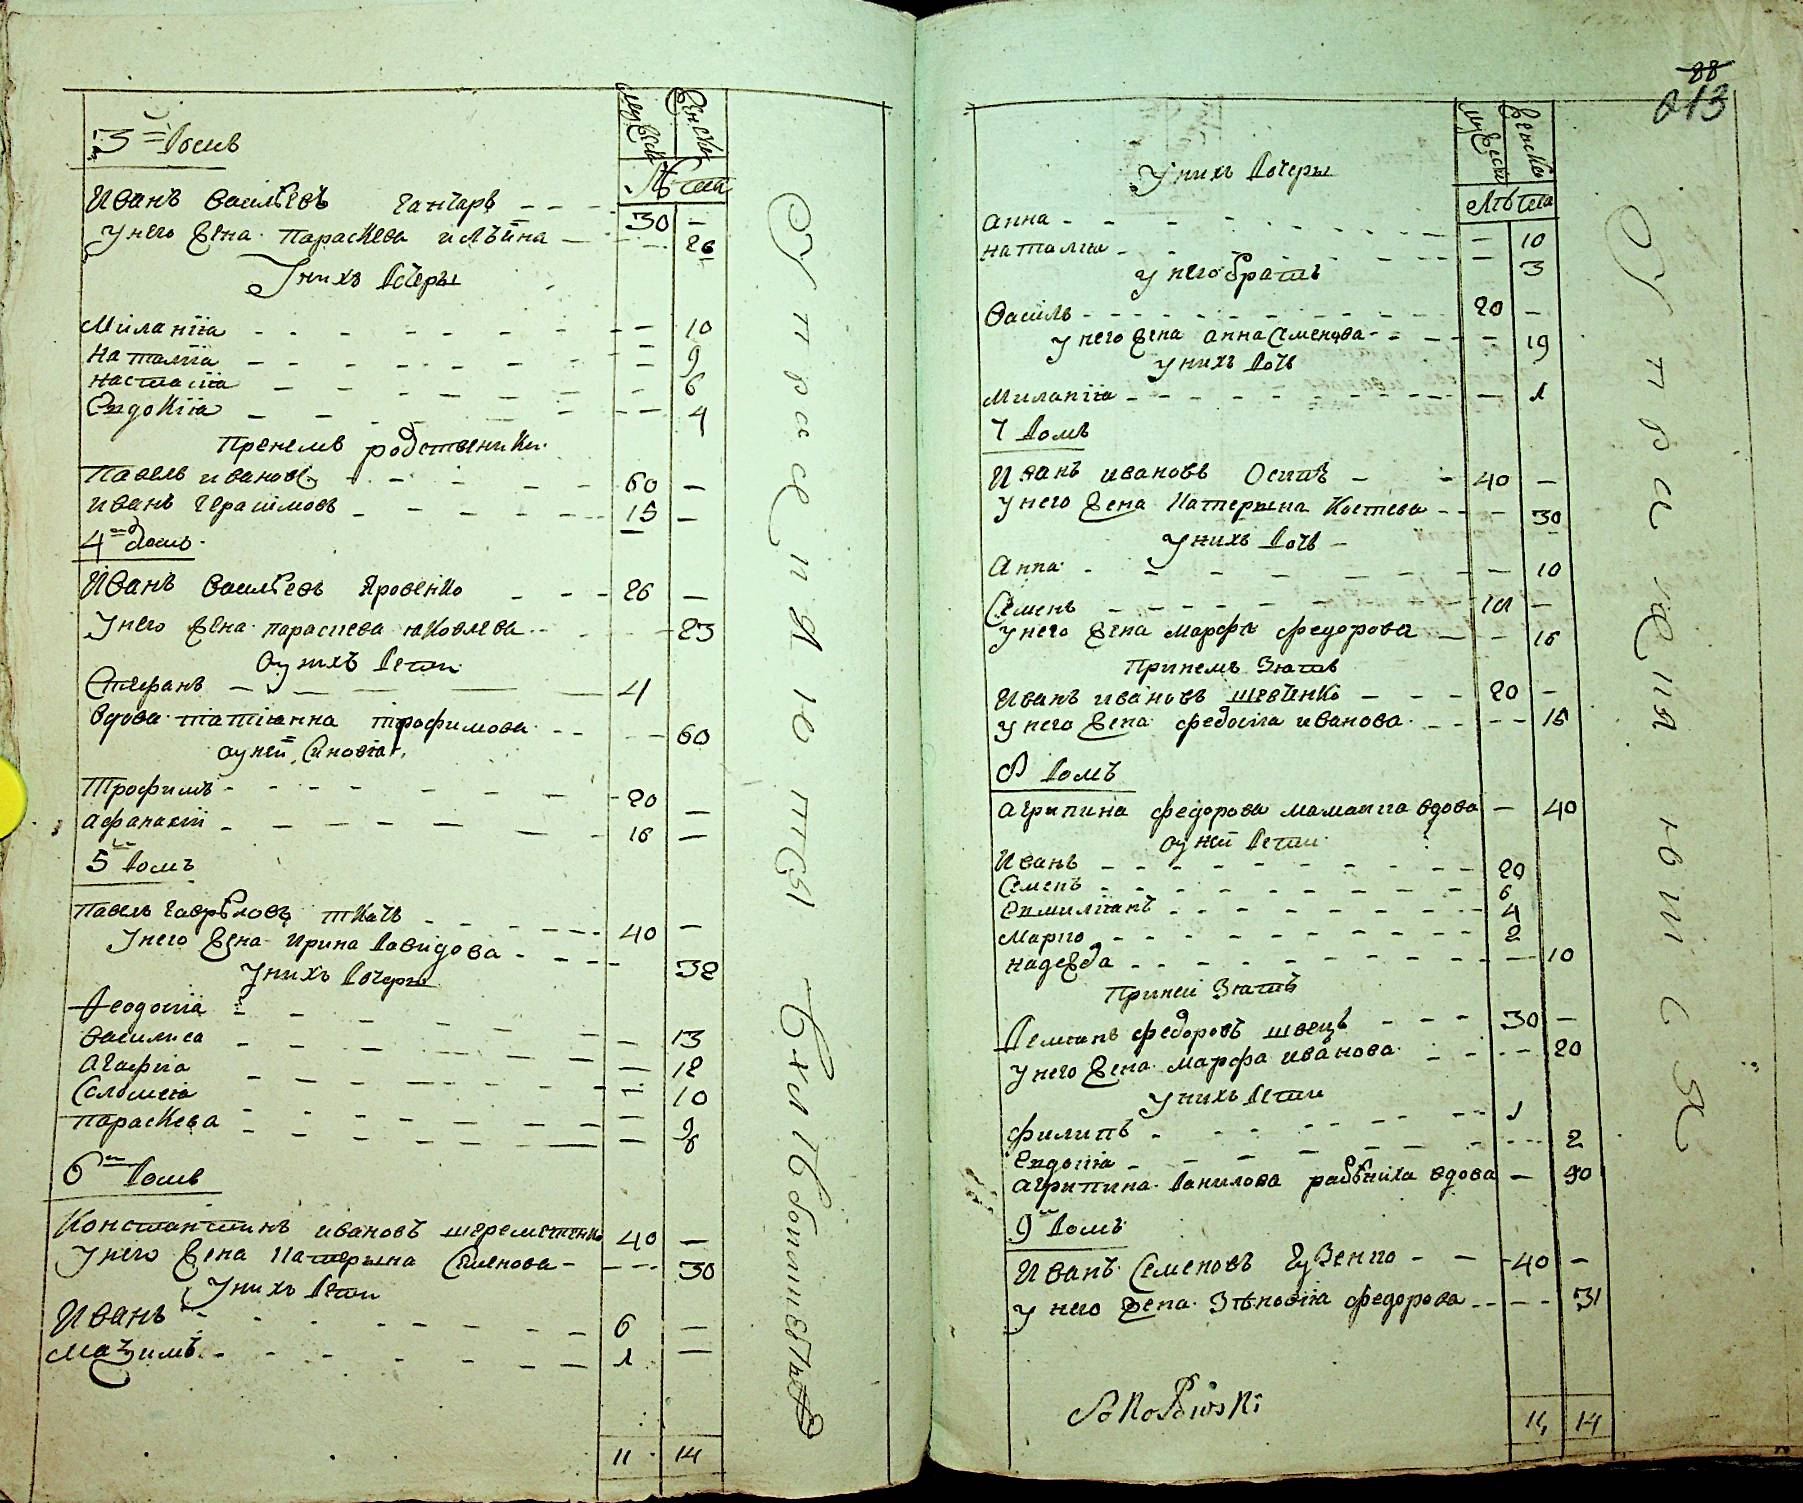 3 Домъ
мужеск женск
Лѣта
Иванъ Васильевъ Ганчаръ 30 —
у него жена Параскева ильина — 26
у нихъ Дочеры
Миланіа — 10
Наталіа — 9
Настасіа — 6
Евдокіиа — 4
При немъ родственики
Павелъ ивановъ 60 —
иванъ Герасімовъ 15 —
4 Домъ
Иванъ Васильевъ Яровенко 26 —
у него жена параскева яковлева — 23
оу нихъ Дети
Стефанъ 4
Вдова татіанна трофимова 60
оу ней Синовіа
Трофимъ 20 —
Афанасий 16 —
5 Домъ
Павелъ Гаврѣловъ ткачъ 40 —
у него жена Ирина Давидова 32
у нихъ Дочеры
Феодосіа — 13
Василиса — 12
Агафиа — 10
Соломеіа — 9
Параскева — 6
6 Домъ
Константинъ ивановъ шереметенко 40 —
у него жена Катерына Семенова 30
у нихъ Дети
Иванъ 6 —
Маѯимъ 1 —
11 14
Упраженяються
хлѣбопашествомъ
88
013
мужеск женско
Лѣта
у нихъ Дочеры
анна — 10
наталиа — 3
у него братъ
Василь 20 —
у него жена анна Семенова — 19
у нихъ Дочь
Миланіиа — 1
7 Домъ
Иванъ ивановъ Осипъ 40 —
у него жена Катерына Костева 30
у нихъ Дочь
Анна — 10
Семенъ —
у него жена марфа федорова — 16
При немъ Зятъ
Иванъ ивановъ шевченко 20 —
у него жена федосіа иванова 16
8 Домъ
Агрипина федорова вдова — 40
оу ней Дети
Иванъ 20
Семенъ 6
Емилианъ 4
Марко 2
надежда — 10
При ней Зять
Демианъ федоровъ швецъ 30 —
у него жена марфа иванова 20
у нихъ Дети
филипъ 1
Евдокиа 2
Агрипина Данилова вдова — 90
9 Домъ
Иванъ Семеновъ Гузенко 40 —
у него жена Зѣновіиа федорова 31
Sokolowski
11 14
Упражняюшися